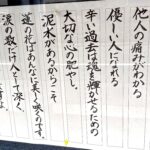 他人の痛みがわかる
優しい人になれる
辛い過去は魂を輝かせるための
大切な心の肥やし。
泥水があるからこそ
蓮の花はあんなに美しく咲くのです。
涙の数だけ人として深く、